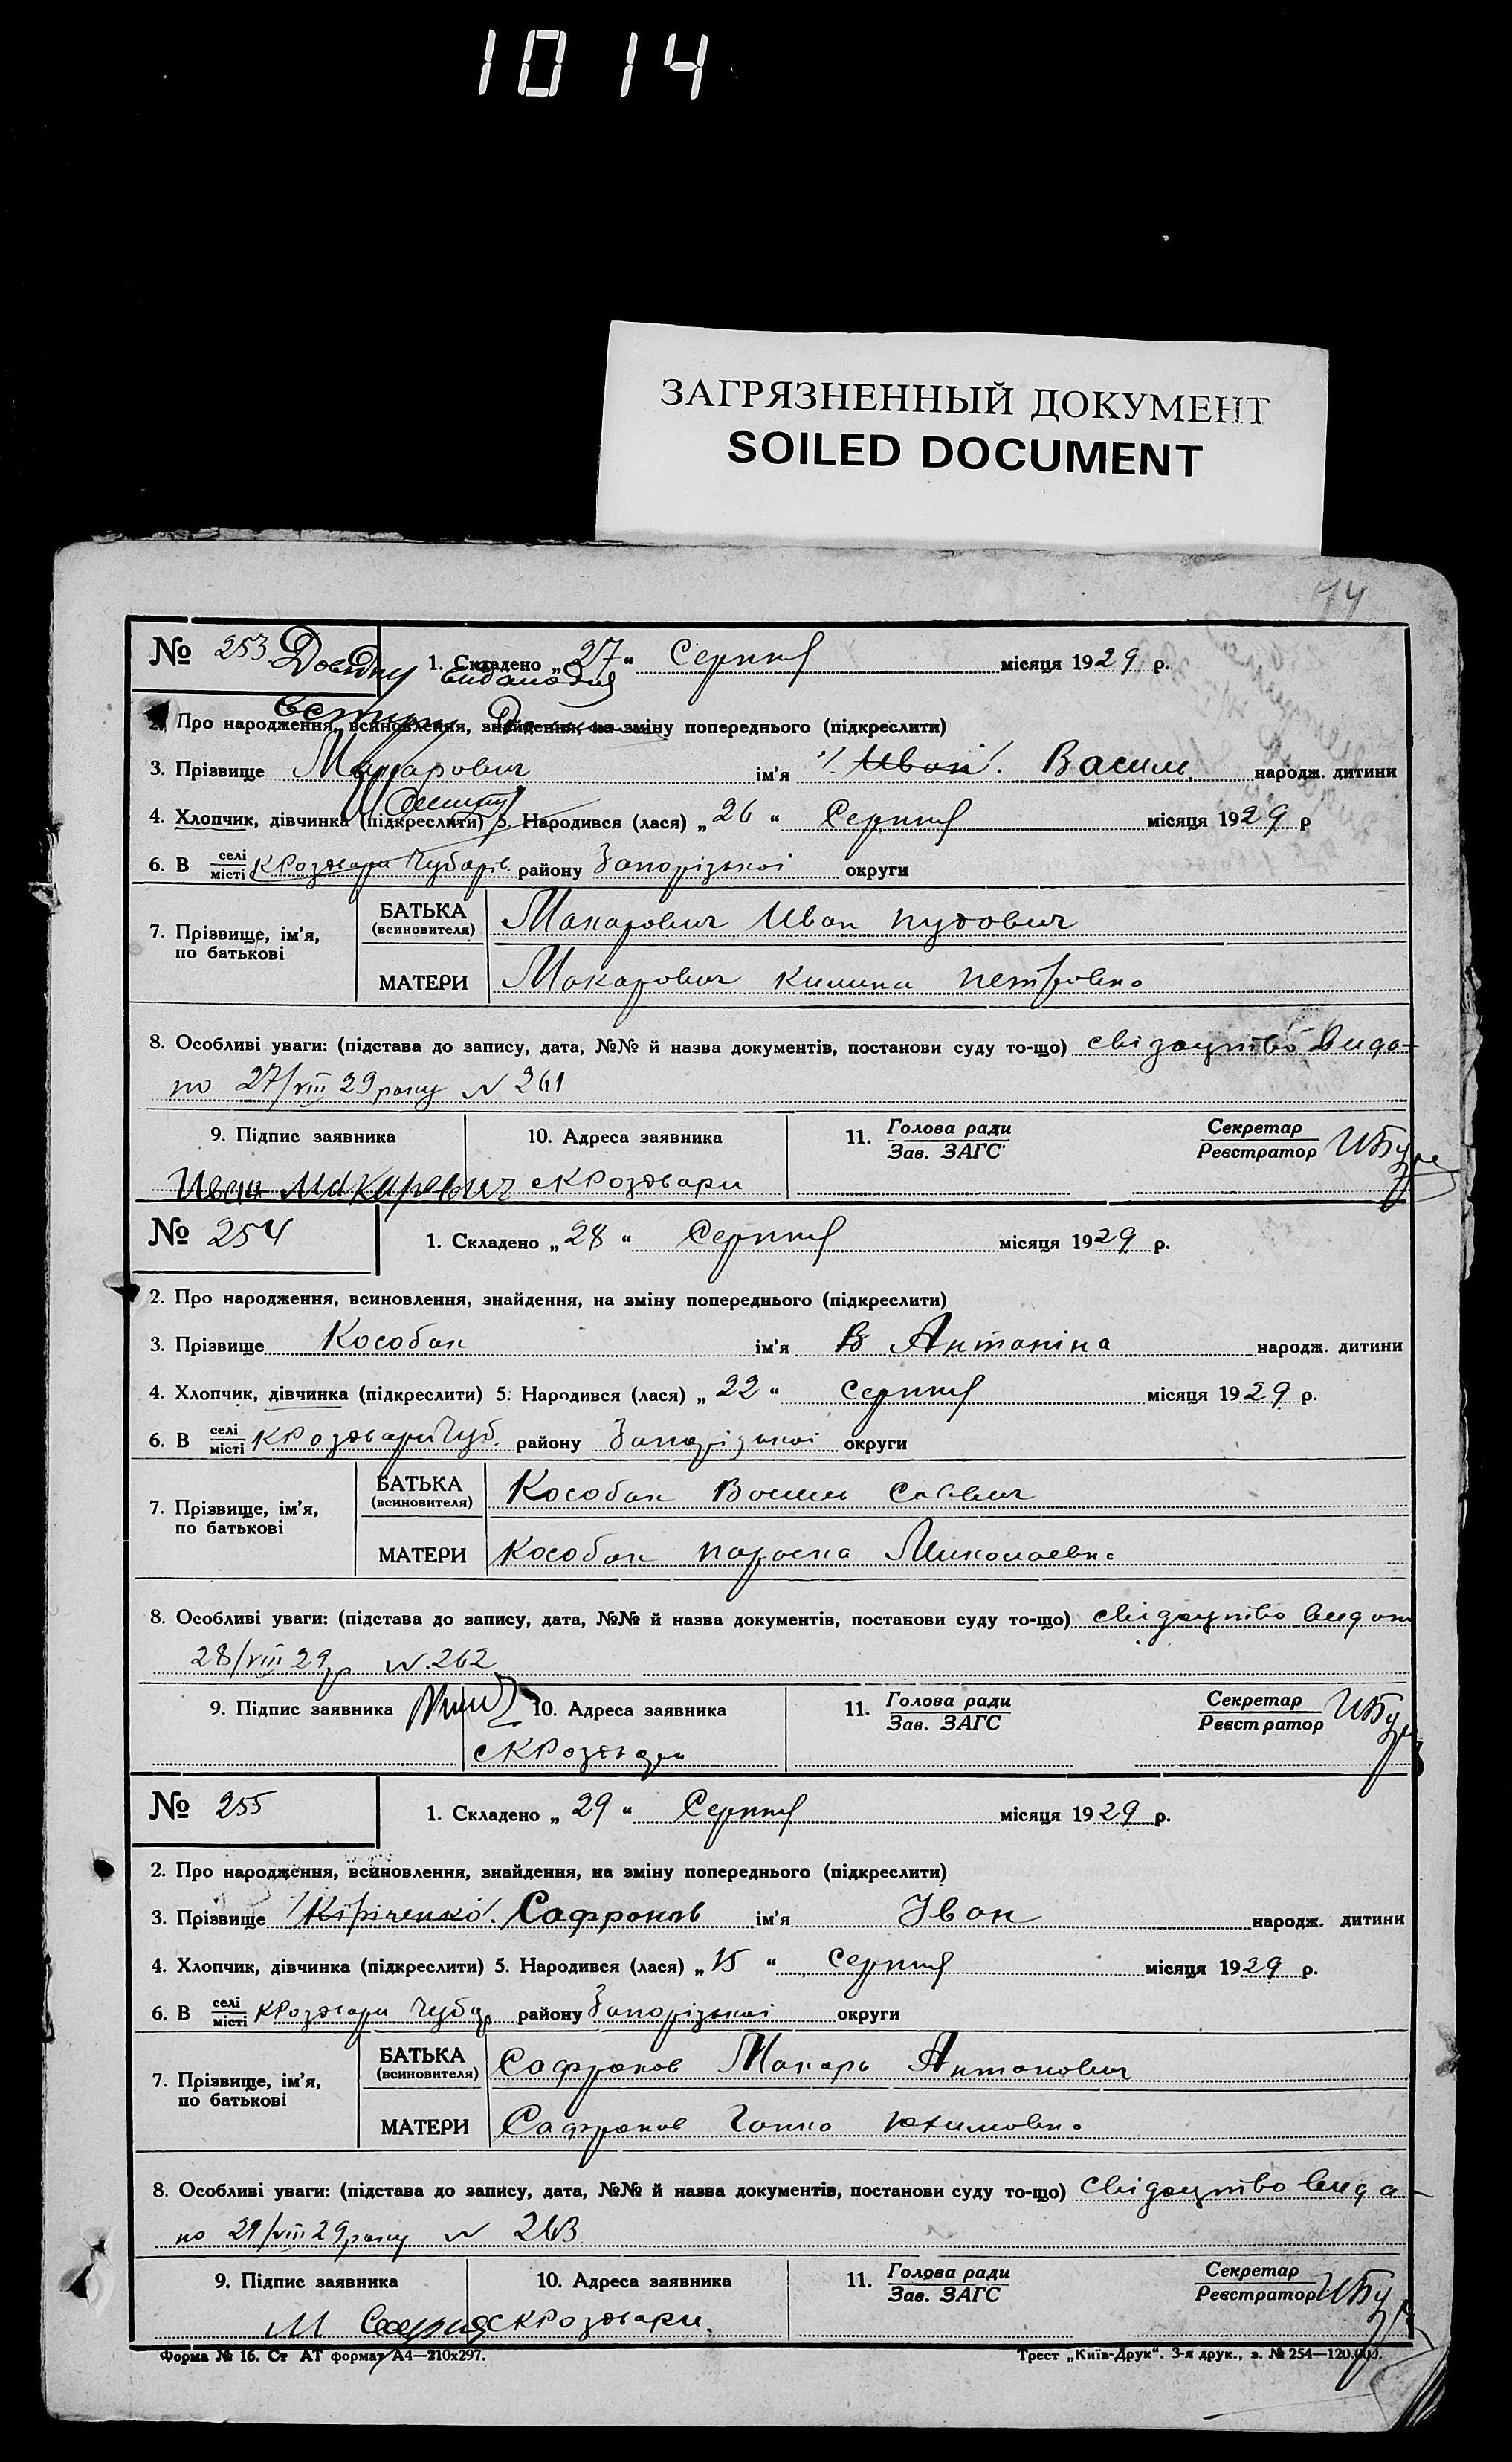 1014
ЗАГРЯЗНЕННЫЙ ДОКУМЕНТ
SOILED DOCUMENT
№ 253 Довідку видано для
1. Складено „27“ Серпня місяця 1929 р.
Про народження, всиновлення, знайдення, на зміну попереднього (підкреслити)
3. Прізвище Макарович ім'я /Иван/. Васил. народж. дитини
4. Хлопчик, дівчинка (підкреслити) 5. Народився (лася) „26“ Серпня місяця 1929 р
6. В селі місті КРоздори Чубарів. району Запорізькоі округи
7. Прізвище, ім'я, по батькові
БАТЬКА (всиновителя) Макарович Иван
МАТЕРИ Макарович Килина петровна
8. Особливі уваги: (підстава до запису, дата, №№ й назва документів, постанови суду то-що) свідоцтво вида-
но 27/VIII 29 року N 261
9. Підпис заявника 10. Адреса заявника 11. Голова ради Зав. ЗАГС Секретар Реєстратор
Иван Макарович с КРоздори
№ 254 1. Складено „28“ Серпня місяця 1929 р.
2. Про народження, всиновлення, знайдення, на зміну попереднього (підкреслити)
3. Прізвище Кособок ім'я Антоніна народж. дитини
4. Хлопчик, дівчинка (підкреслити) 5. Народився (лася) „22“ серпня місяця 1929 р.
6. В селі місті КРоздори Чуб. району Запорізькоі округи
7. Прізвище, ім'я, по батькові
БАТЬКА (всиновителя) Кособок Василь Савович
МАТЕРИ Кособок параска Миколаевна
8. Особливі уваги: (підстава до запису, дата, №№ й назва документів, постанови суду то-що) свідоцтво видан
28/VIII 29 р N. 262
9. Підпис заявника 10. Адреса заявника 11. Голова ради Зав. ЗАГС Секретар Реєстратор
с КРоздори
№ 255 1. Складено „29“ Серпня місяця 1929 р.
2. Про народження, всиновлення, знайдення, на зміну попереднього (підкреслити)
3. Прізвище /Кіріченко/. Сафронов ім'я Іван народж. дитини
4. Хлопчик, дівчинка (підкреслити) 5. Народився (лася) „15“ серпня місяця 1929 р.
6. В селі місті КРоздори Чубар району Запорізькоі округи
7. Прізвище, ім'я, по батькові
БАТЬКА (всиновителя) Сафронов Макарь Антонович
МАТЕРИ Сафронов Гапка Юхимовна
8. Особливі уваги: (підстава до запису, дата, №№ й назва документів, постанови суду то-що) свідоцтво вида-
но 29/VIII 29 року N 263
9. Підпис заявника 10. Адреса заявника 11. Голова ради Зав. ЗАГС Секретар Реєстратор
М с КРоздори.
Форма № 16. Ст АТ формат А4—210х297. Трест „Київ-Друк“. 3-я друк., з. № 254—120.000.